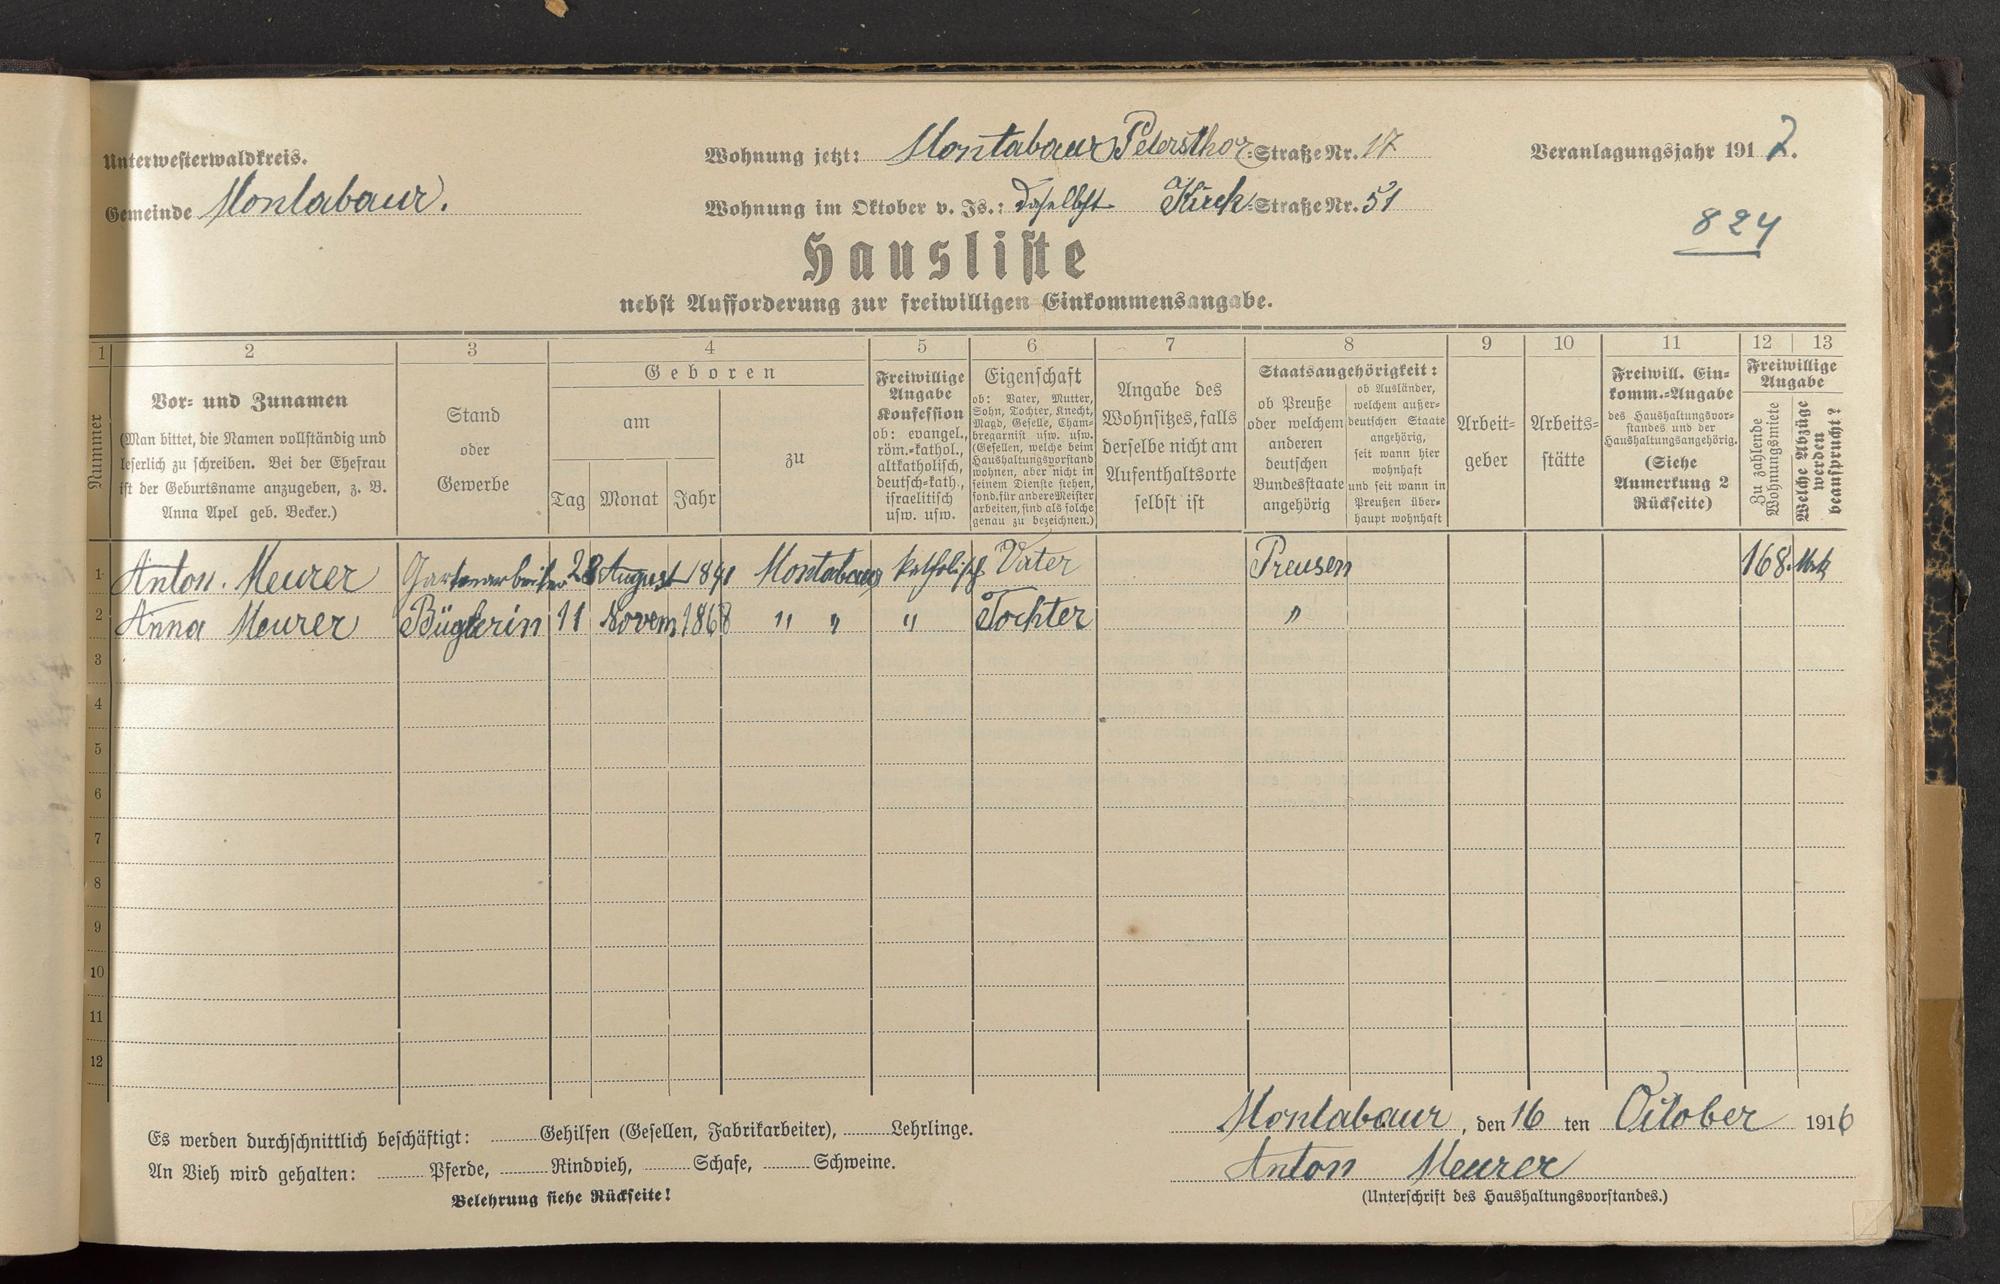 Unterwesterwaldkreis.
Gemeinde Montabaur.
Wohnung jetzt: Montabaur Petersthor-Straße Nr. 17
Wohnung im Oktober v. Js.: daselbst Kirch-Straße Nr. 51
Veranlagungsjahr 1917.
824
Hausliste
nebst Aufforderung zur freiwilligen Einkommensangabe.
1 2 3 4 5 6 7 8 9 10 11 12 13
Nummer
Vor- und Zunamen
(Man bittet, die Namen vollständig und
leserlich zu schreiben. Bei der Ehefrau
ist der Geburtsname anzugeben, z. B.
Anna Apel geb. Becker.)
Stand
oder
Gewerbe
Geboren
am
Tag Monat Jahr
zu
Freiwillige
Angabe
Konfession
ob: evangel.,
röm.-kathol.,
altkatholisch,
deutsch-kath.,
israelitisch
usw. usw.
Eigenschaft
ob: Vater, Mutter,
Sohn, Tochter, Knecht,
Magd, Geselle, Cham-
bregarnist usw. usw.
(Gesellen, welche beim
Haushaltungsvorstand
wohnen, aber nicht in
seinem Dienste stehen,
sond. für andere Meister
arbeiten, sind als solche
genau zu bezeichnen.)
Angabe des
Wohnsitzes, falls
derselbe nicht am
Aufenthaltsorte
selbst ist
Staatsangehörigkeit:
ob Preuße
oder welchem
anderen
deutschen
Bundesstaate
angehörig
ob Ausländer,
welchem außer-
deutschen Staate
angehörig,
seit wann hier
wohnhaft
und seit wann in
Preußen über-
haupt wohnhaft
Arbeit-
geber
Arbeits-
stätte
Freiwill. Ein-
komm.-Angabe
des Haushaltungsvor-
standes und der
Haushaltungsangehörig.
(Siehe
Anmerkung 2
Rückseite)
Freiwillige
Angabe
Zu zahlende
Wohnungsmiete
Welche Abzüge
werden
beansprucht?
1 Anton. Meurer Gartenarbeiter 28 August 1841 Montabaur katholisch Vater Preusen 168 Mrk
2 Anna Meurer Büglerin 11 Novem 1868 " " " Tochter "
3
4
5
6
7
8
9
10
11
12
Es werden durchschnittlich beschäftigt: Gehilfen (Gesellen, Fabrikarbeiter), Lehrlinge.
An Vieh wird gehalten: Pferde, Rindvieh, Schafe, Schweine.
Belehrung siehe Rückseite!
Montabaur, den 16 ten October 1916
Anton Meurer
(Unterschrift des Haushaltungsvorstandes.)